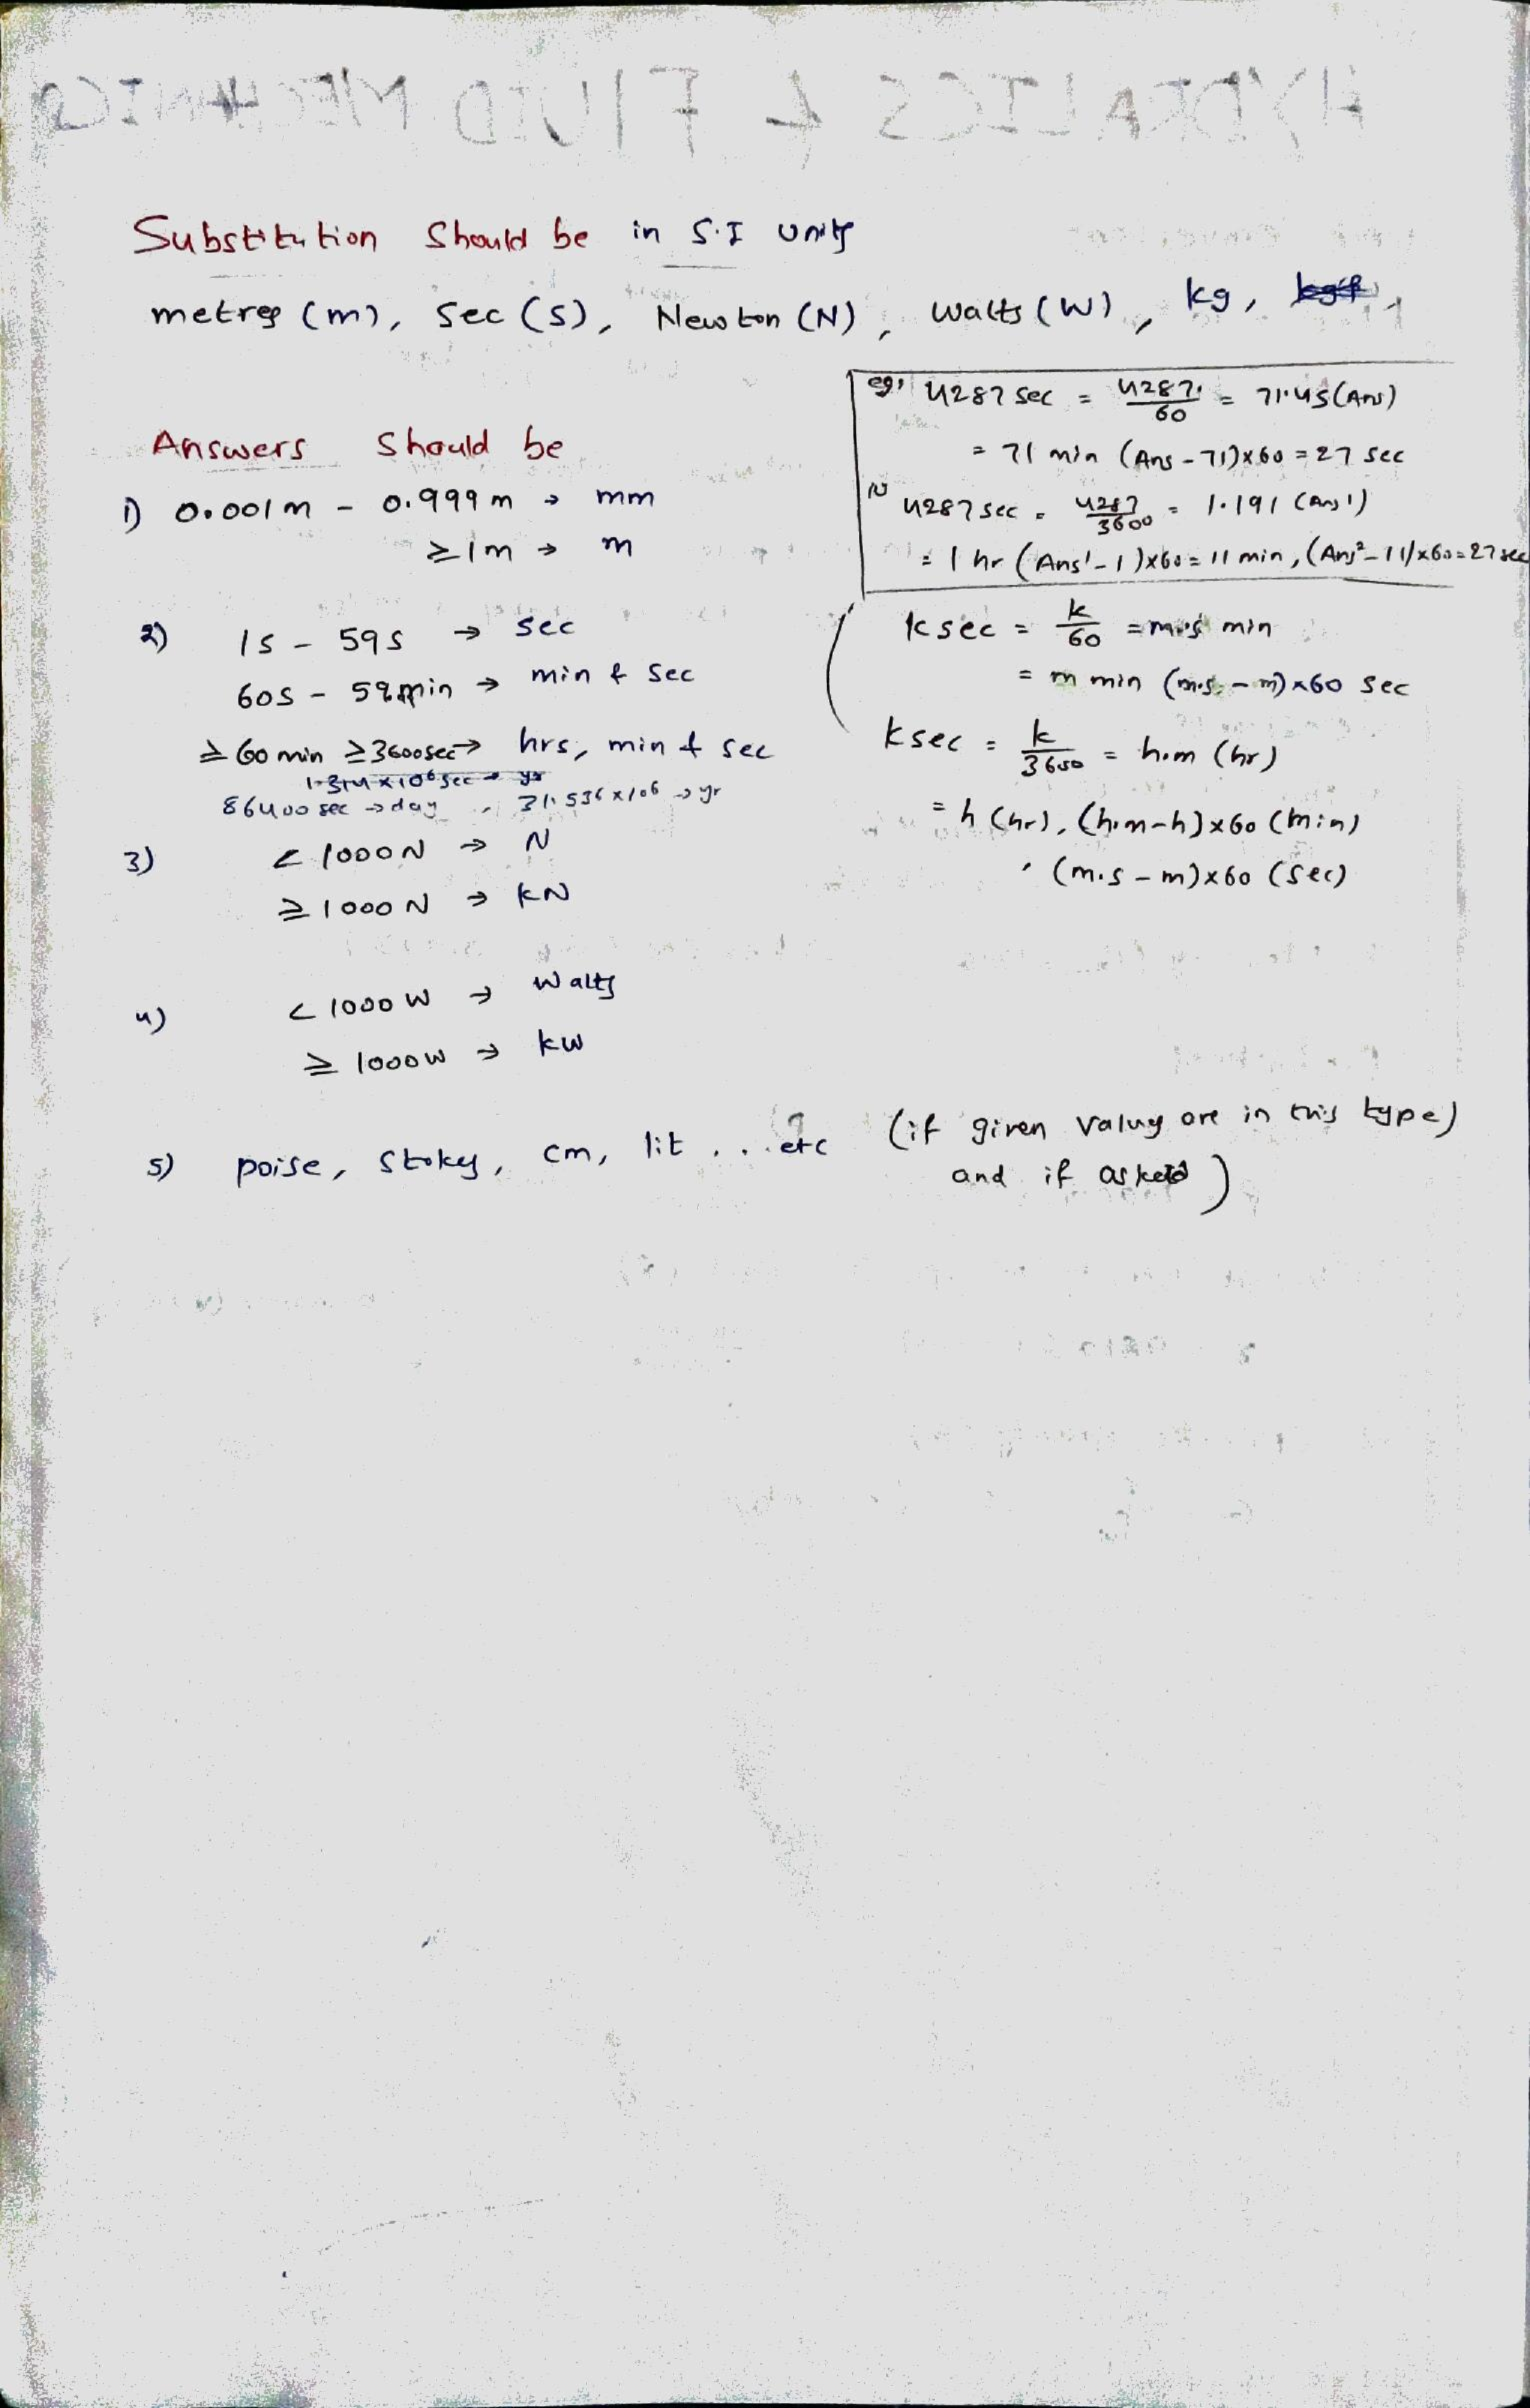 HYDRALICS & FLUID MECHANICS
Substitution Should be in S.I units
metres (m), Sec (s), Newton (N), Watts (W), kg,
Answers Should be
1) 0.001m - 0.999m → mm
≥1m → m
2) 1s - 59s → sec
60s - 59min → min & sec
≥ 60 min ≥3600sec → hrs, min & sec
86400 sec → day, 31.536 x 10⁶ → yr
3) < 1000N → N
≥ 1000N → kN
4) < 1000 W → Watts
≥ 1000W → kW
5) poise, Stokes, cm, lit . . . etc (if given values are in this type)
and if asked)
eg: 4287 sec = 4287/60 = 71.45 (Ans)
= 71 min (Ans - 71)x60 = 27 sec
4287 sec = 4287/3600 = 1.191 (Ans¹)
= 1 hr (Ans¹-1)x60 = 11 min, (Ans²-11)x60 = 27 sec
k sec = k/60 = m.s min
= m min (m.s - m)x60 sec
k sec = k/3600 = h.m (hr)
= h (hr), (h.m-h)x60 (min)
, (m.s - m)x60 (sec)